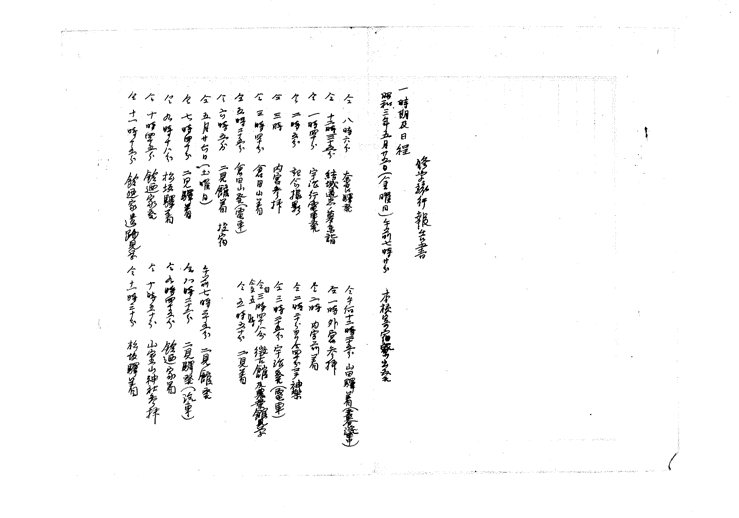 修学旅行報告書
一時期及日程
昭和三年五月廿五日(金曜日)午前七時廿分 本校寄宿舎出発
仝 八時六分 奈良駅発
仝午后十二時二十五分 山田駅着
仝 十一時三十五分 結城邁 墓参詣
仝一時外宮参拝
仝 一時四十分 宇治行電車発
仝二時 内宮前着
仝 二時五分 記念撮影
仝二時二十分ヨリ四十分マデ神楽
仝 三時 内宮参拝
仝三時二十五分宇治発(電車)
仝 三時四十分 倉田山着
仝三時四十分 徴古館及農業館見学
仝五時二十五分 倉田山発(電車)
仝五時五十分 二見着
仝六時五分 二見館着 投宿
仝五月廿六日(土曜日)
午前七時二十五分 二見館発
仝 七時四十分 二見駅着
仝八時二十分 二見駅発(汽車)
仝 九時十八分 松坂駅着
仝九時四十五分 鈴廼家着
仝 十時四十五分 鈴廼家発
仝十時五十分 山室山神社参拝
仝 十一時十五分 鈴廼家遺跡見学
仝十一時二十分 松坂駅着